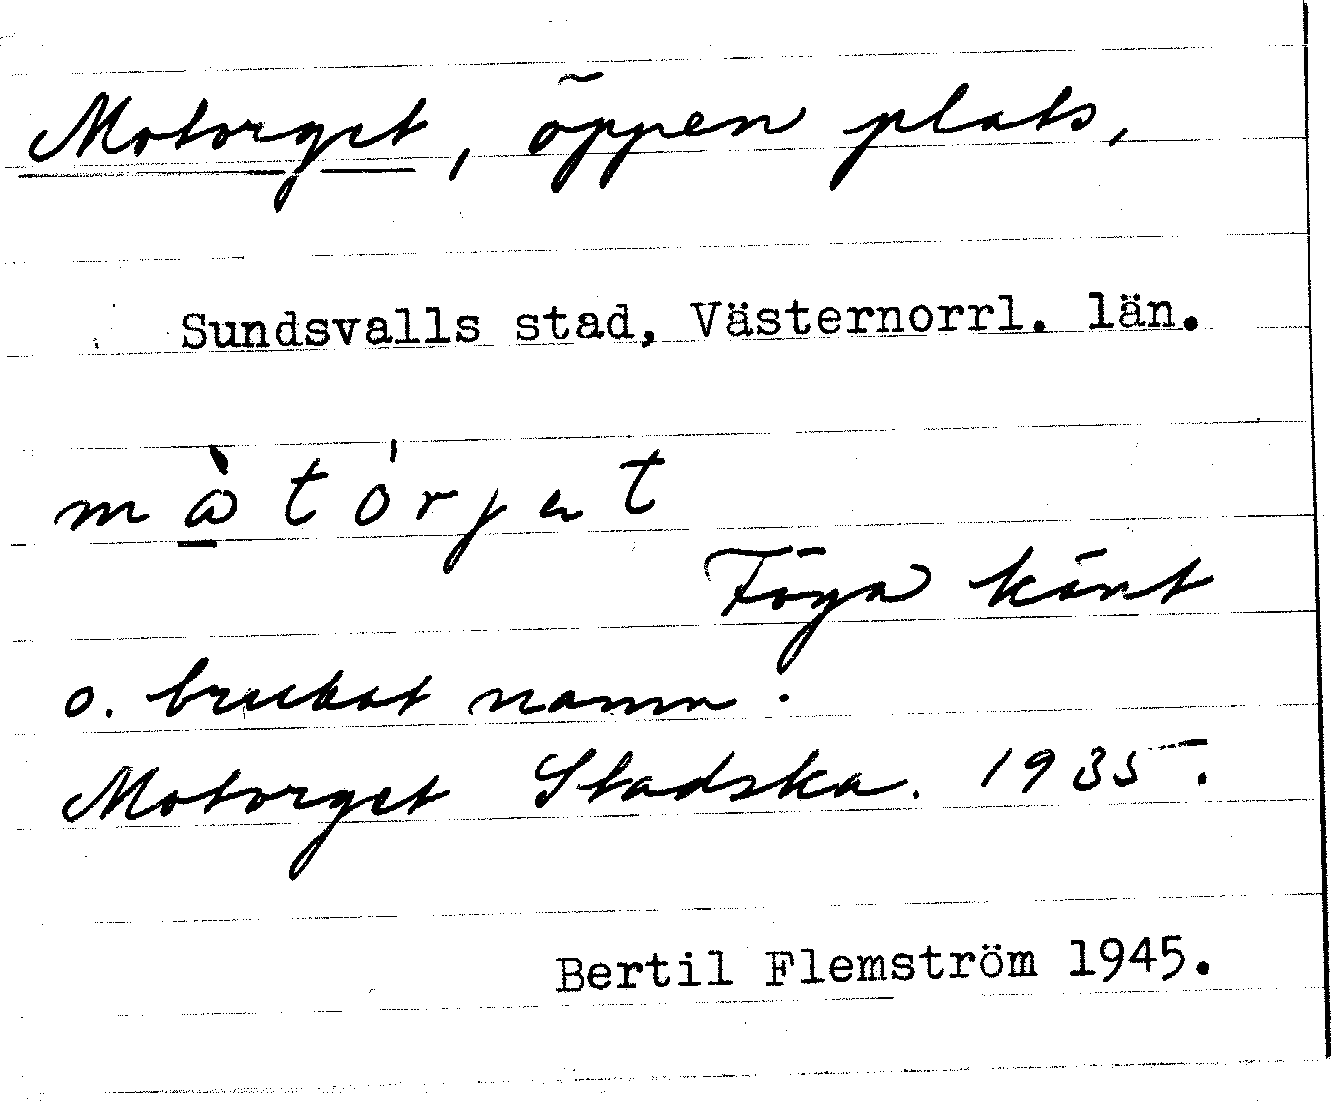 Motorget, öppen plats,
Sundsvalls stad, Västernorrl. län.
mòtórjet
Föga känt
o. brukat namn.
Motorget Stadska. 1935.
Bertil Flemström 1945.